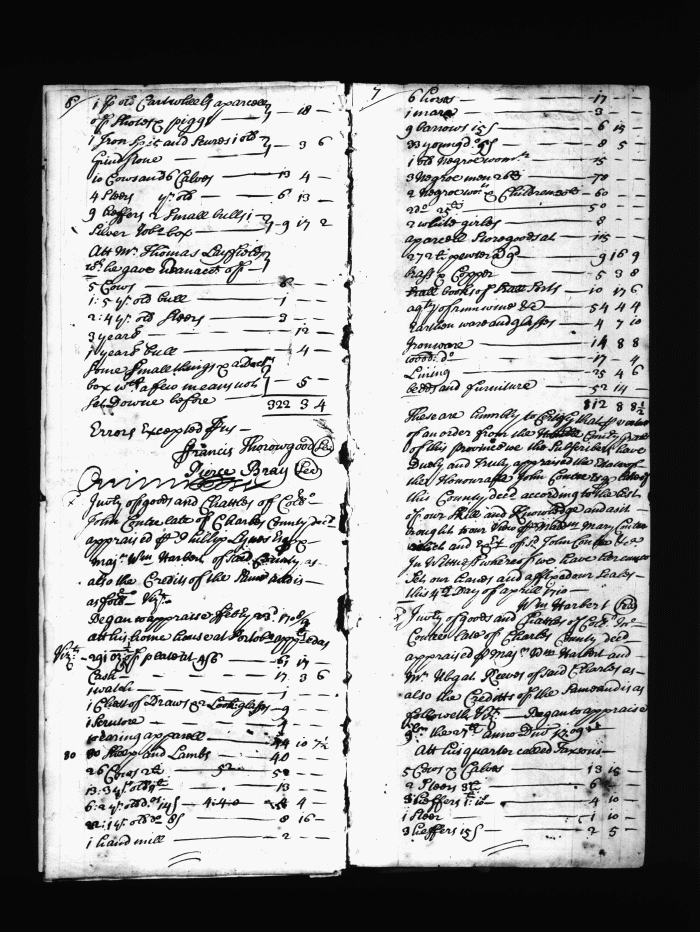 6
1 pr old Cartwheels a parcell
of Shotes & piggs — 18 —
1 Iron Spit and Skures 1 old — 3 6
Grindstone
10 Cows and 6 Calves — 13 4 —
4 Steers yr. old — 6 13 —
9 heffers 2 Small bulls 1 — 9 17 2
Silver Tobo box
Att Mr. Thomas Layfields
he gave
5 Cows — 8 —
1: 5 yr. old bull — 1 —
2: 4 yr. old Steers — 3 —
3 yeard — 12
1 yeard bull — 4 —
Some Small things & a Deal
box wth a few means not — 5 —
Set Downe before
322 3 4
Errors Excepted pr us —
Francis Thorowgood
Pierce Bray
Invty of goods and Chattles of Coll.o
John Contee late of Charles County decd
appraised pr Phillip Lynes Esq. &
Majr. Wm Harbert of Said County as
also the Credits of the Same
as foll.
Began to appraise Feb.ry 23d. 1708/9
att his home house at Portobo
Vizt. 291 oz of plate at 4/6 — 61 17
Cash — 17 3 6
1 watch
1 Chest of Draws & Look: glass — 9
1 Scrutore
wearing apparell — 44 10 7½
80 Sheep and Lambs — 40 —
26 Cows — 52 — 52 —
13: 3 yr. old — 13
6: 2 yr. old 14s — 4:4:0 — 4
22: 1 yr. old do 8s — 8 16 —
1 hand mill — 2 —
7
6 horses — 17 —
1 mare — 3 —
9 barrows 15s — 6 15 —
33 young do. 5s — 8 5 —
1 old Negroe woman — 15
3 Negroe men — 70
2 Negroe wo. & Children — 60 —
2 do. 25 — 50
2 white girles — 8 —
a parcell Store goods at — 115 —
272 pewter 9d — 9 16 9
brass & Copper — 5 3 8
Small books of Small Sorts — 10 17 6
a qty of rum wine &c — 54 4 4
Earthen ware and glasses — 4 7 10
Ironware — 14 8 8
wood: do — 17 — 4
Lining — 25 4 6
beds and furniture — 52 14 —
812 8 8½
These are humbly to Certify that pr vertue
of an order from the County
of this province we the Subscribers have
Duely and Truly appraised the Estate of
the Honourable John Contee Esq. late of
this County decd according to the best
of our Skill and Knowledge and as it
brought to our View pr Madm Mary Contee
and Ext. of sd John Contee
In Wittness whereof we have hereunto
Set our hands and affixed our Seales
this 4th Day of Aprill 1710 —
Wm Harbert
Invty of goods and Chattles of Coll. Jno
Contee late of Charles County decd
appraised pr Majr Wm Harbert and
Mr. Ubgat Reeves of Said Charles as
also the Creditts of the Same and is as
followeth Vizt — Began to appraise
the 27th Anno Dno 1709
Att his quarter called
5 Cows & Calves — 13 15 —
2 Steers — 6
3 heffers — 4 10 —
1 Steer — 1 10 —
3 heffers 15s — 2 5 —